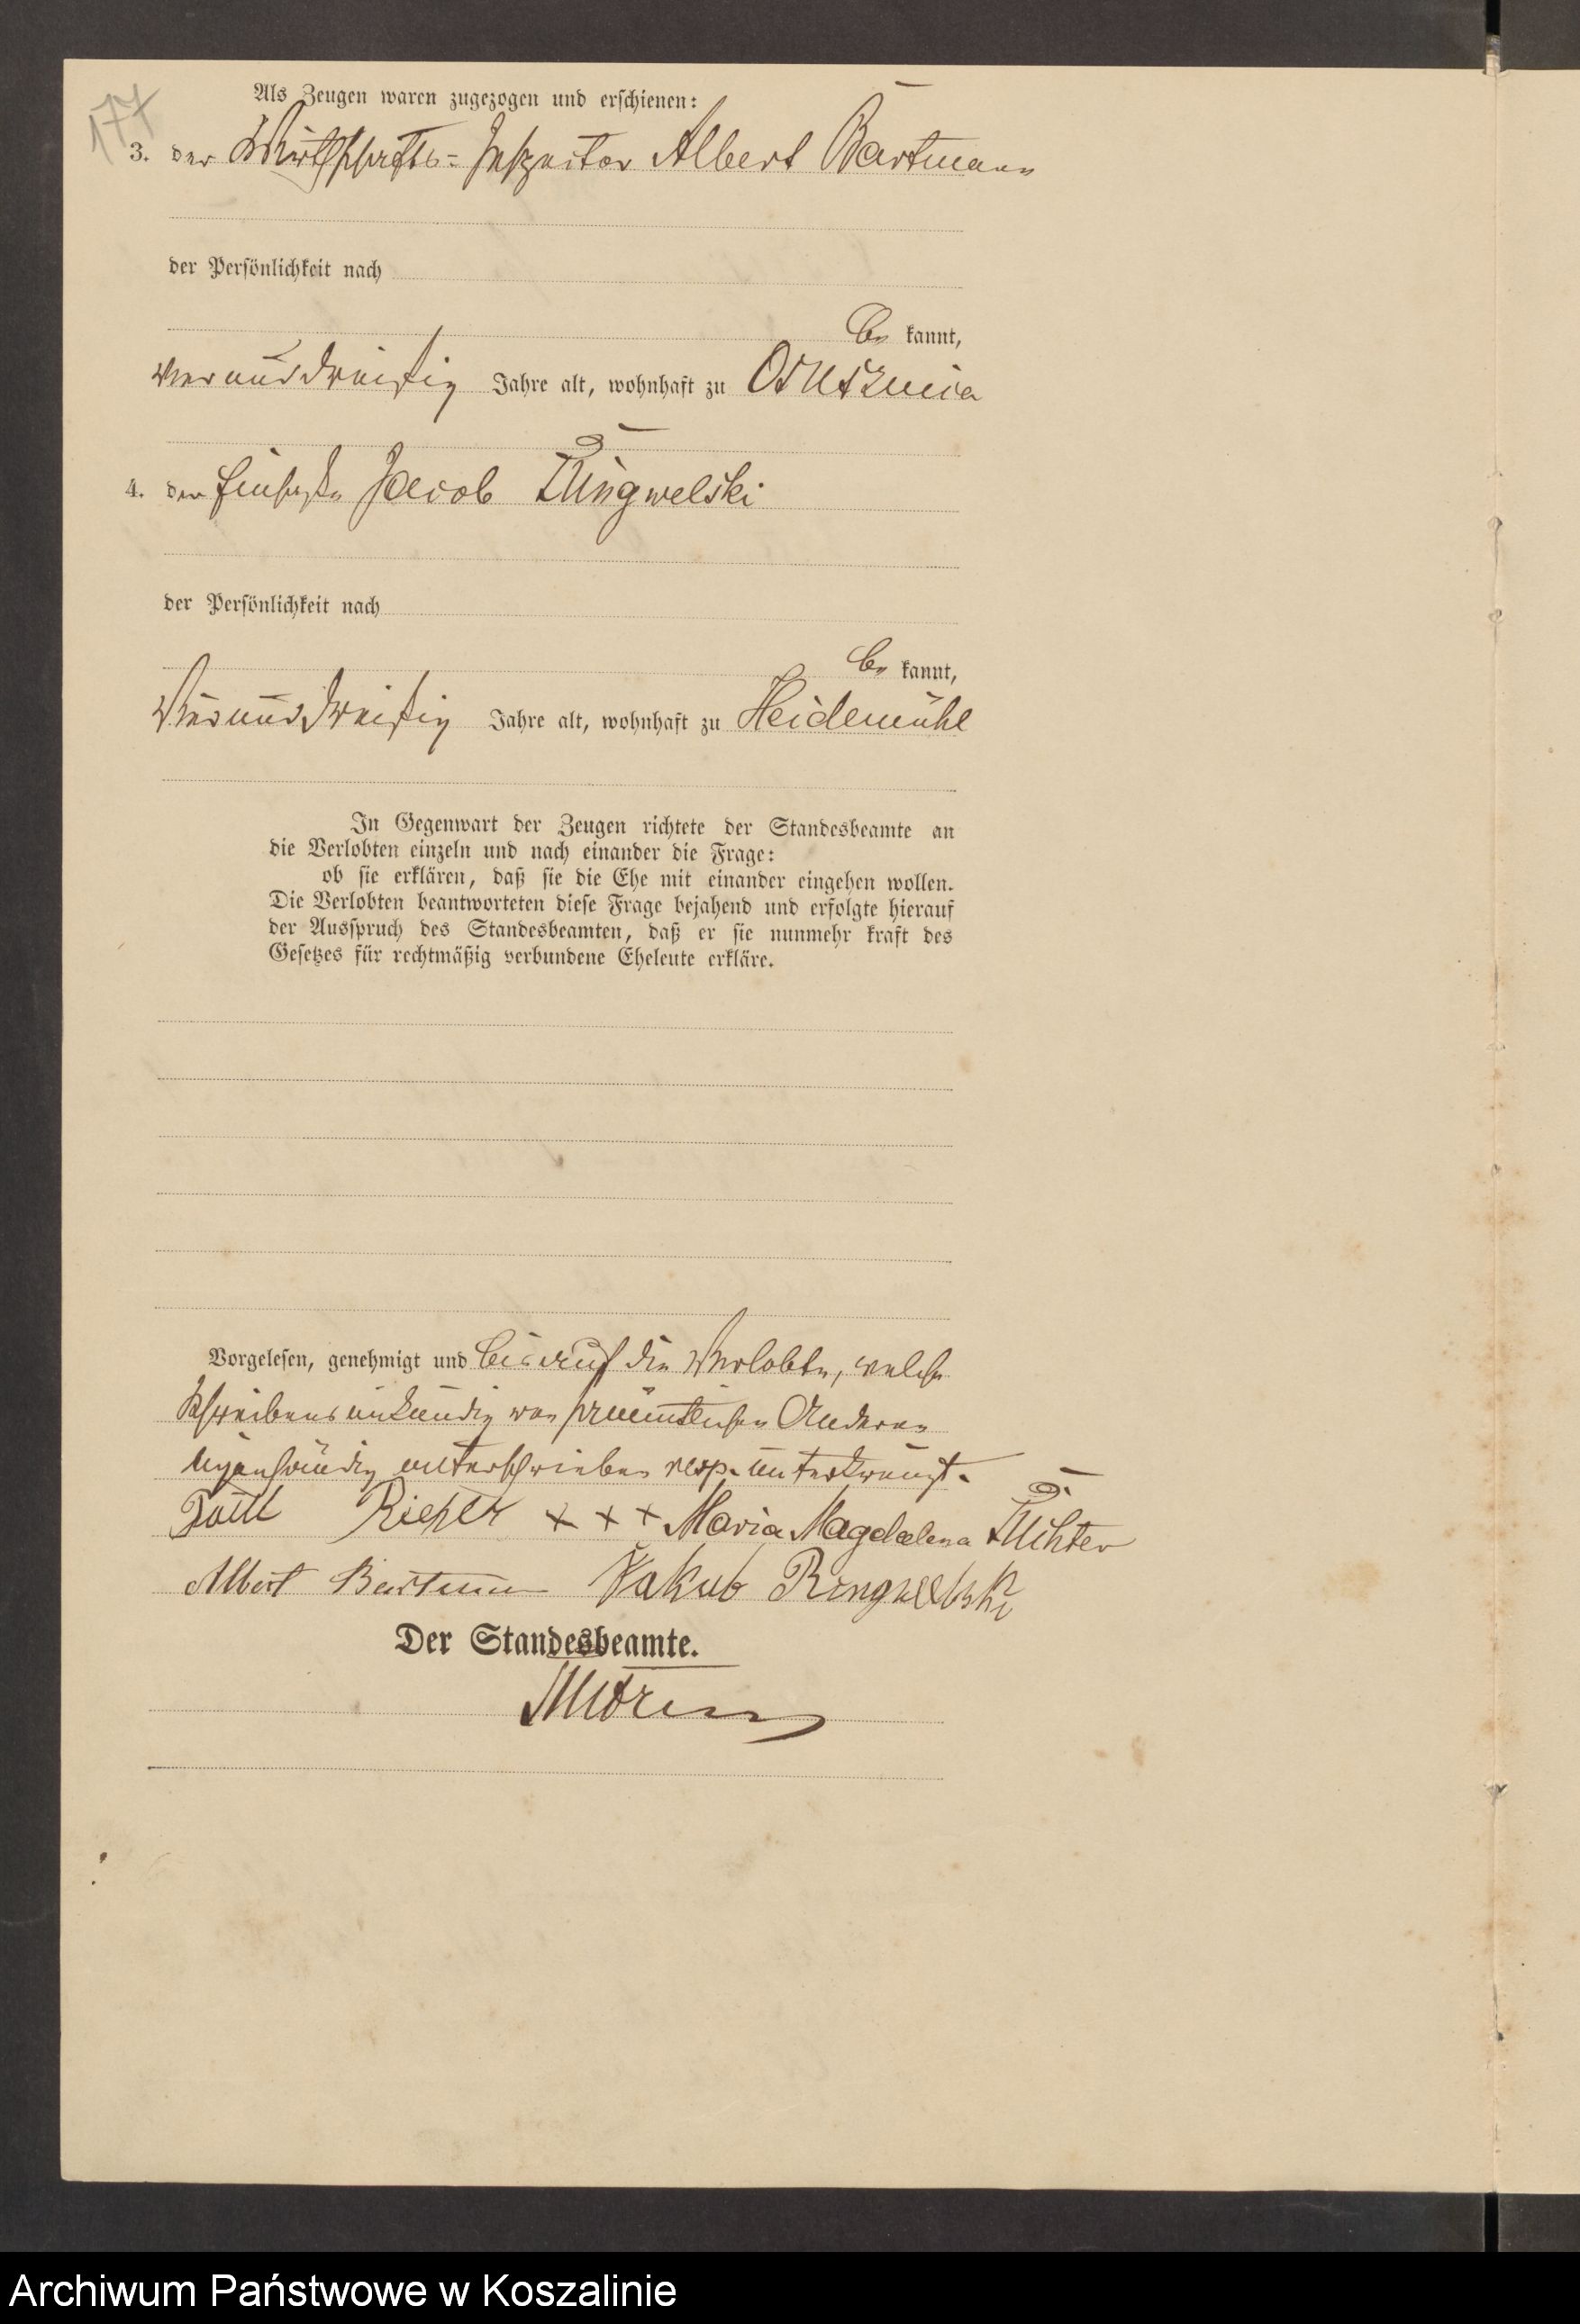 177
Als Zeugen waren zugezogen und erschienen:
3. der Wirthschafts-Inspector Albert Bartmann
der Persönlichkeit nach
be kannt,
vierunddreißig Jahre alt, wohnhaft zu Osusznica
4. der Jacob Ringwelski
der Persönlichkeit nach
be kannt,
vierunddreißig Jahre alt, wohnhaft zu Heidemühl
In Gegenwart der Zeugen richtete der Standesbeamte an
die Verlobten einzeln und nach einander die Frage:
ob sie erklären, daß sie die Ehe mit einander eingehen wollen.
Die Verlobten beantworteten diese Frage bejahend und erfolgte hierauf
der Ausspruch des Standesbeamten, daß er sie nunmehr kraft des
Gesetzes für rechtmäßig verbundene Eheleute erkläre.
Vorgelesen, genehmigt und bis auf die Verlobte, welche
schreibensunkundig war sämmtlichen Anderen
eigenhändig unterschrieben resp. unterkreuzt.
Richter + + + Maria Magdalena Richter
Albert Bartmann Jakub Ringwelski
Der Standesbeamte.
Archiwum Państwowe w Koszalinie